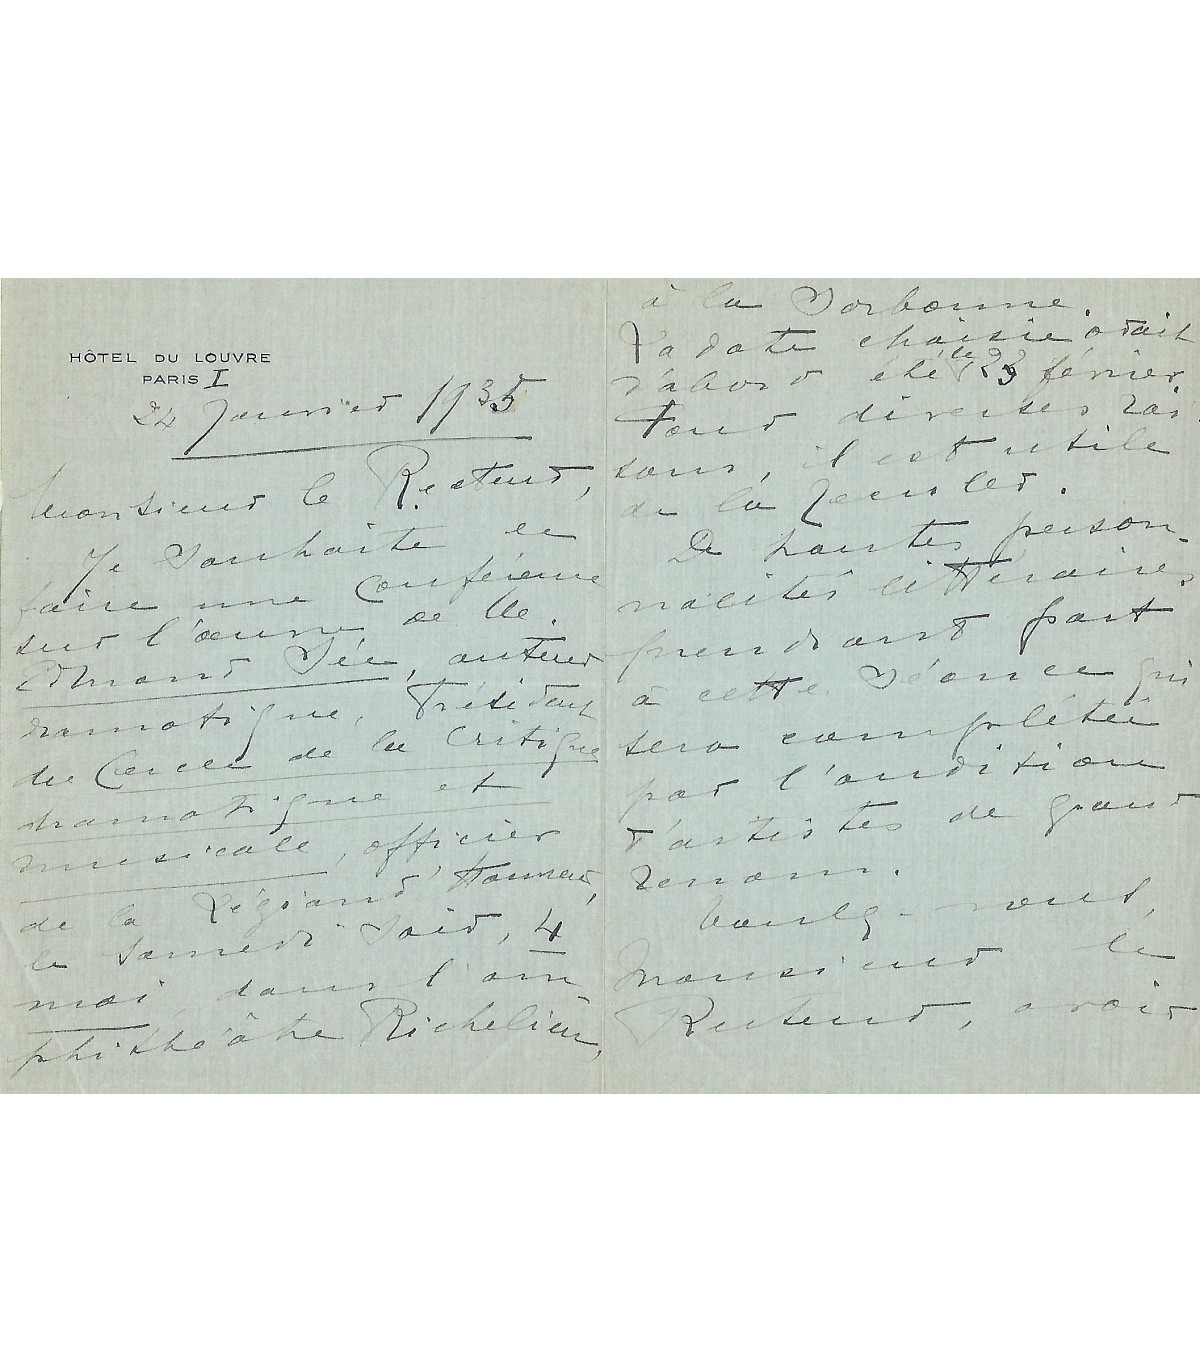 HÔTEL DU LOUVRE
PARIS I
24 Janvier 1935
Monsieur le Recteur,
Je souhaite
faire une conférence
sur l'œuvre de M.
Edmond Sée, auteur
dramatique, Président
du Cercle de la Critique
dramatique et
musicale, officier
de la Légion d'Honneur,
le Samedi soir, 4
mai, dans l'am
phithéâtre Richelieu,
à la Sorbonne.
La date choisie avait
d'abord été le 23 février.
Pour diverses rai
sons, il est utile
de la reculer.
De hautes person-
nalités littéraires
prendront part
à cette séance qui
sera complétée
par l'audition
d'artistes de grand
renom.
Veuillez-vous,
Monsieur le
Recteur, avoir